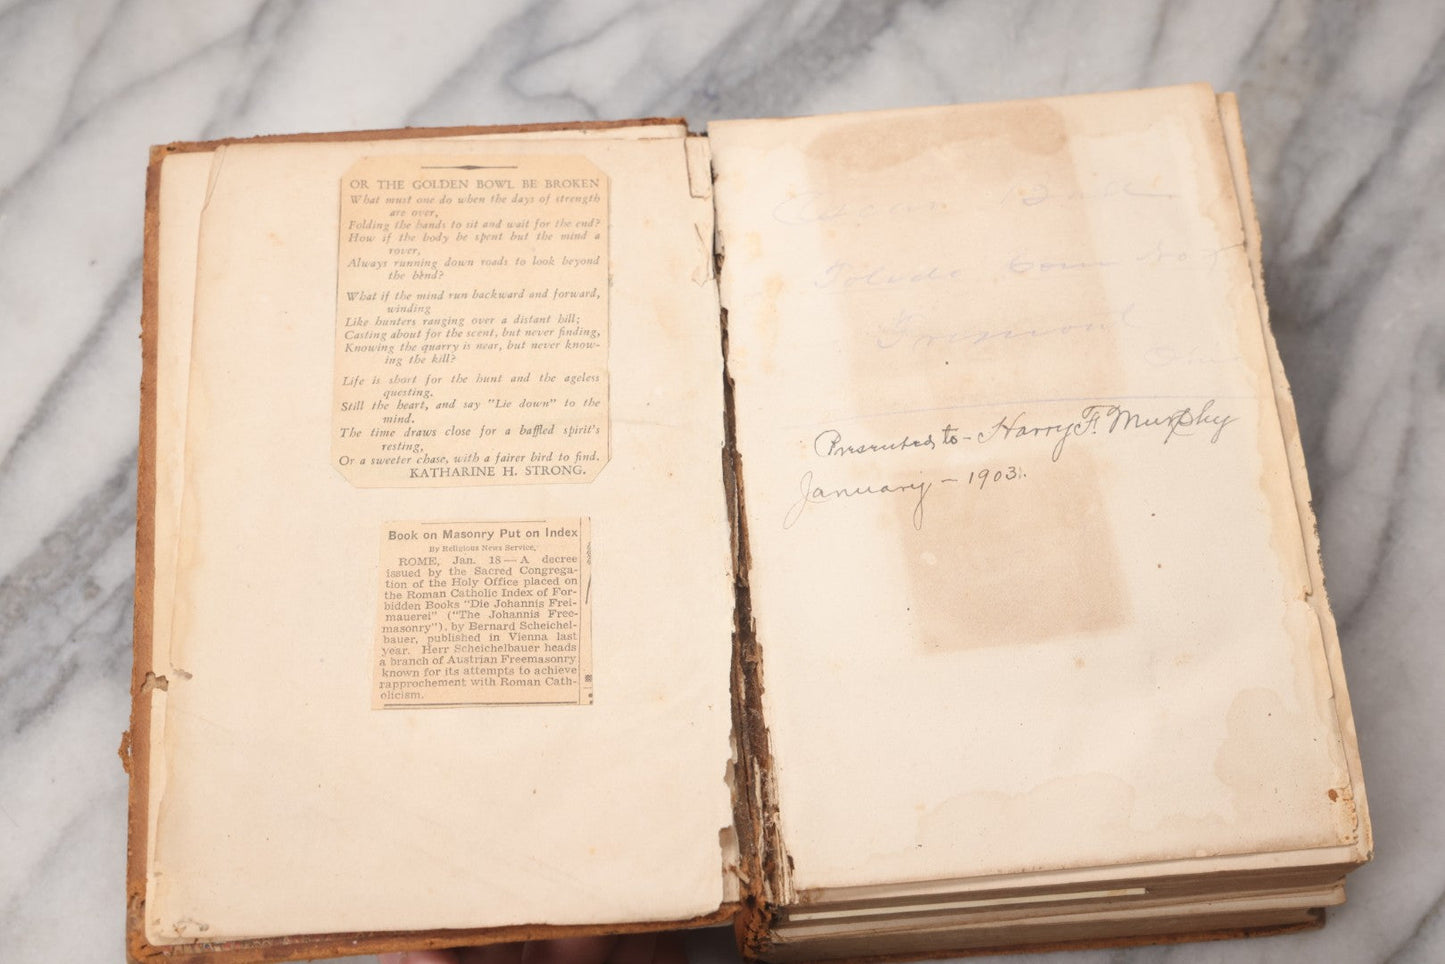 OR THE GOLDEN BOWL BE BROKEN
What must one do when the days of strength
are over,
Folding the hands to sit and wait for the end?
How if the body be spent but the mind a
rover,
Always running down roads to look beyond
the bend?
What if the mind run backward and forward,
winding
Like hunters ranging over a distant hill;
Casting about for the scent, but never finding,
Knowing the quarry is near, but never know-
ing the kill?
Life is short for the hunt and the ageless
questing.
Still the heart, and say "Lie down" to the
mind.
The time draws close for a baffled spirit's
resting,
Or a sweeter chase, with a fairer bird to find.
KATHARINE H. STRONG.
Book on Masonry Put on Index
By Religious News Service.
ROME, Jan. 18—A decree
issued by the Sacred Congrega-
tion of the Holy Office placed on
the Roman Catholic Index of For-
bidden Books "Die Johannis Frei-
mauerei" ("The Johannis Free-
masonry"), by Bernard Scheichel-
bauer, published in Vienna last
year. Herr Scheichelbauer heads
a branch of Austrian Freemasonry
known for its attempts to achieve
rapprochement with Roman Cath-
olicism.
Toledo
Presented to - Harry F. Murphy
January - 1903.